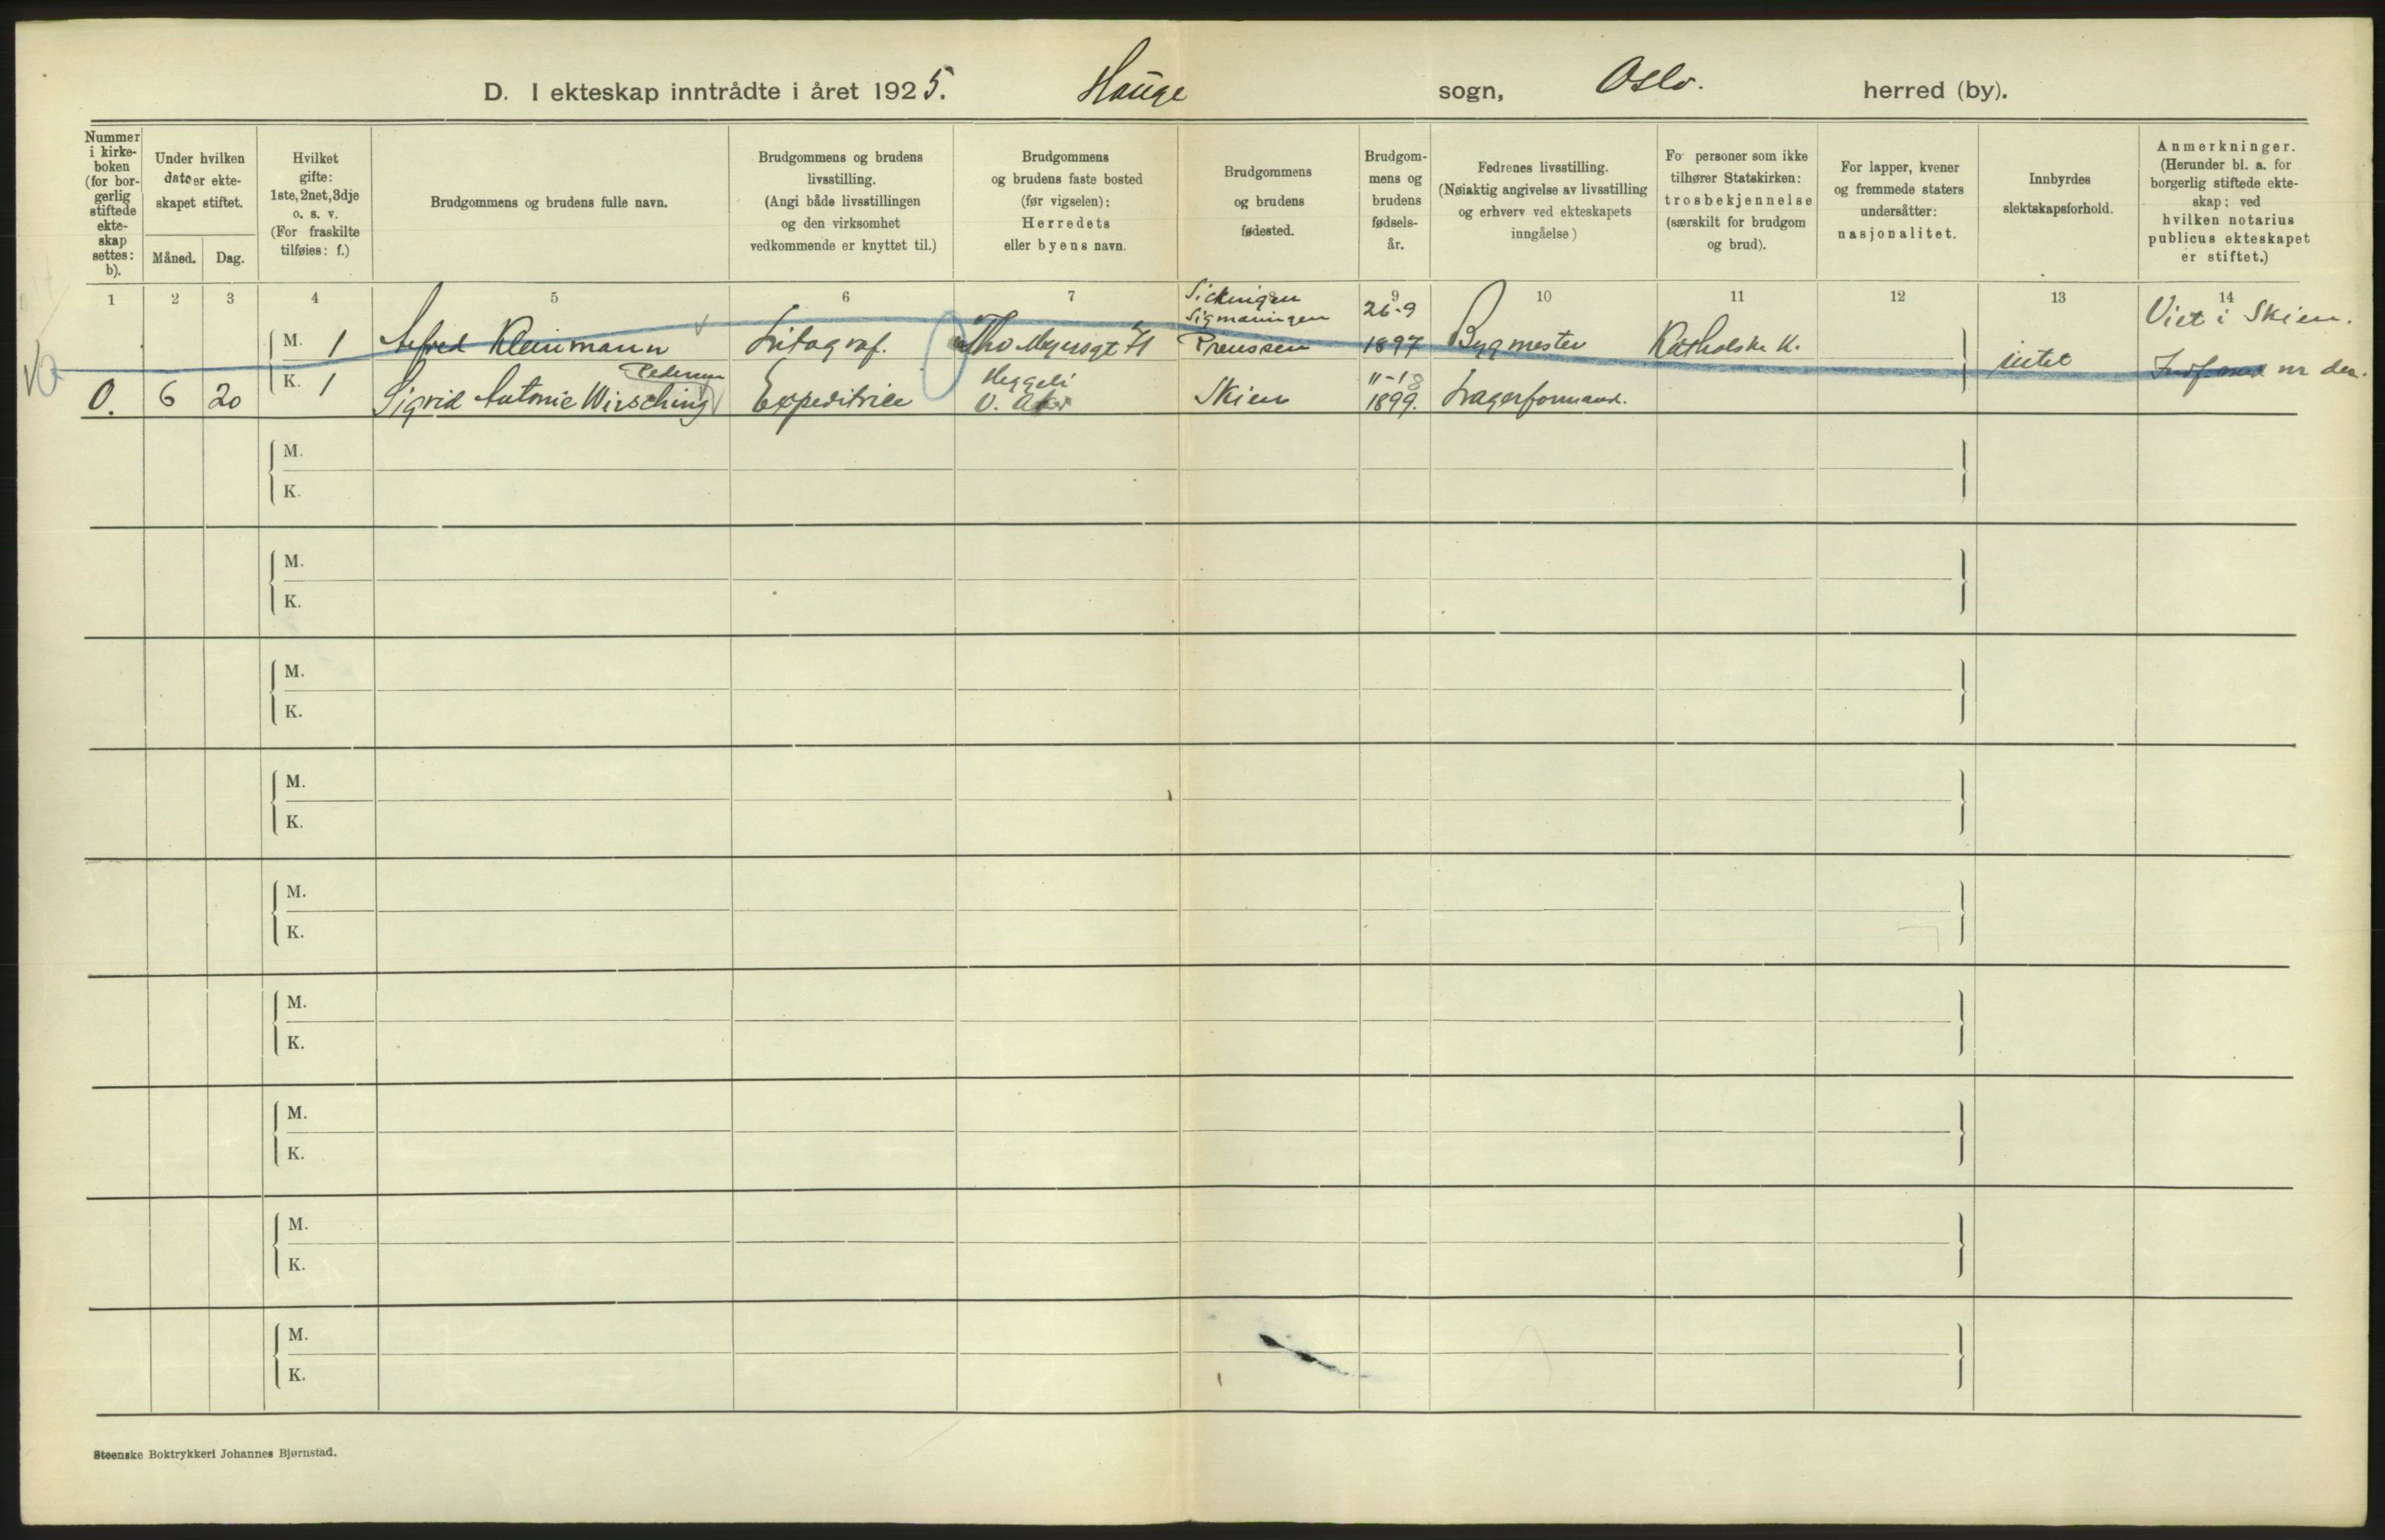 D. I ekteskap inntrådte i året 1925. Hauge sogn, Oslo. herred (by).
Nummer i kirkeboken (for borgerlig stiftede ekteskap settes: b).
Under hvilken dato er ekteskapet stiftet.
Måned. Dag.
Hvilket gifte: 1ste, 2net, 3dje o. s. v. (For fraskilte tilføies: f.)
Brudgommens og brudens fulle navn.
Brudgommens og brudens livsstilling. (Angi både livsstillingen og den virksomhet vedkommende er knyttet til.)
Brudgommens og brudens faste bosted (før vigselen): Herredets eller byens navn.
Brudgommens og brudens fødested.
Brudgommens og brudens fødselsår.
Fedrenes livsstilling. (Nøiaktig angivelse av livsstilling og erhverv ved ekteskapets inngåelse)
Fo personer som ikke tilhører Statskirken: trosbekjennelse (særskilt for brudgom og brud).
For lapper, kvener og fremmede staters undersåtter: nasjonalitet.
Innbyrdes slektskapsforhold.
Anmerkninger. (Herunder bl. a. for borgerlig stiftede ekteskap; ved hvilken notarius publicus ekteskapet er stiftet.)
1 2 3 4 5 6 7 8 9 10 11 12 13 14
Sickingen
Sigmaringen 26-9 Viet i Skien.
M. 1 Alfred Kleinmann Litograf. Tho Meyersgt 71 Preussen 1897 Bygmester Katholske K.
intet
K. 1 Pedersen Heggeli 11-18
O. 6 20 Sigrid Antonie Wirsching Expeditrice V. Aker Skien 1899. Lagerformand.
M.
K.
M.
K.
M.
K.
M.
K.
M.
K.
M.
K.
M.
K.
M.
K.
M.
K.
Steenske Boktrykkeri Johannes Bjørnstad.